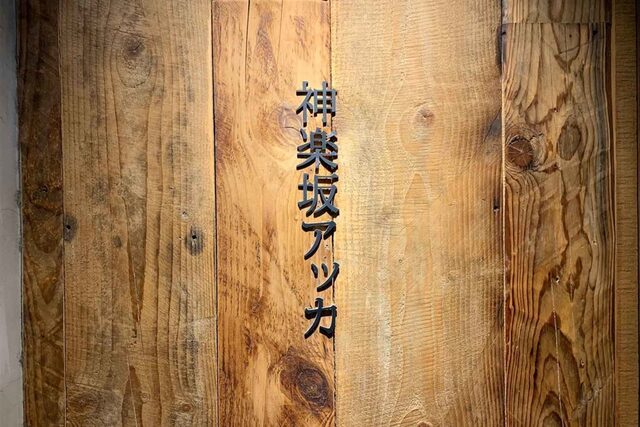 神楽坂アッカ